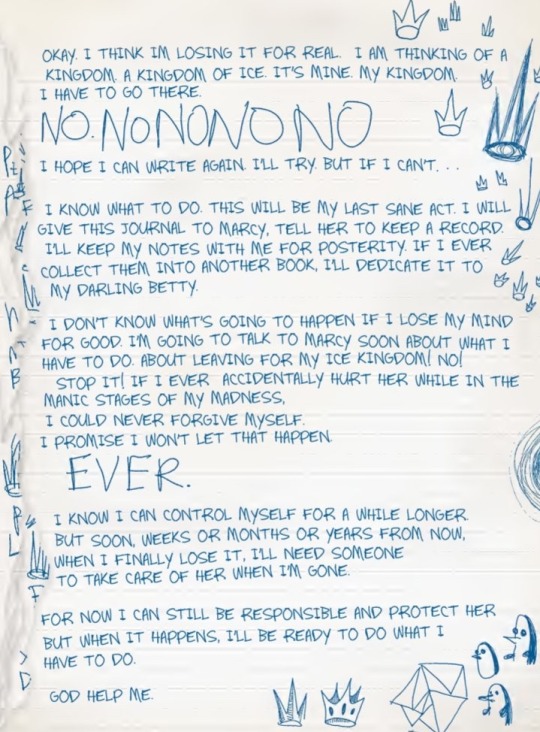 OKAY. I THINK IM LOSING IT FOR REAL. I AM THINKING OF A
KINGDOM. A KINGDOM OF ICE. IT'S MINE. MY KINGDOM.
I HAVE TO GO THERE.
NO. NO NO NO NO NO
I HOPE I CAN WRITE AGAIN. I'LL TRY. BUT IF I CAN'T. . .
I KNOW WHAT TO DO. THIS WILL BE MY LAST SANE ACT. I WILL
GIVE THIS JOURNAL TO MARCY, TELL HER TO KEEP A RECORD.
I'LL KEEP MY NOTES WITH ME FOR POSTERITY. IF I EVER
COLLECT THEM INTO ANOTHER BOOK, I'LL DEDICATE IT TO
MY DARLING BETTY.
I DON'T KNOW WHAT'S GOING TO HAPPEN IF I LOSE MY MIND
FOR GOOD. I'M GOING TO TALK TO MARCY SOON ABOUT WHAT I
HAVE TO DO. ABOUT LEAVING FOR MY ICE KINGDOM! NO!
STOP IT! IF I EVER ACCIDENTALLY HURT HER WHILE IN THE
MANIC STAGES OF MY MADNESS,
I COULD NEVER FORGIVE MYSELF.
I PROMISE I WON'T LET THAT HAPPEN.
EVER.
I KNOW I CAN CONTROL MYSELF FOR A WHILE LONGER.
BUT SOON, WEEKS OR MONTHS OR YEARS FROM NOW,
WHEN I FINALLY LOSE IT, I'LL NEED SOMEONE
TO TAKE CARE OF HER WHEN I'M GONE.
FOR NOW I CAN STILL BE RESPONSIBLE AND PROTECT HER
BUT WHEN IT HAPPENS, I'LL BE READY TO DO WHAT I
HAVE TO DO.
GOD HELP ME.